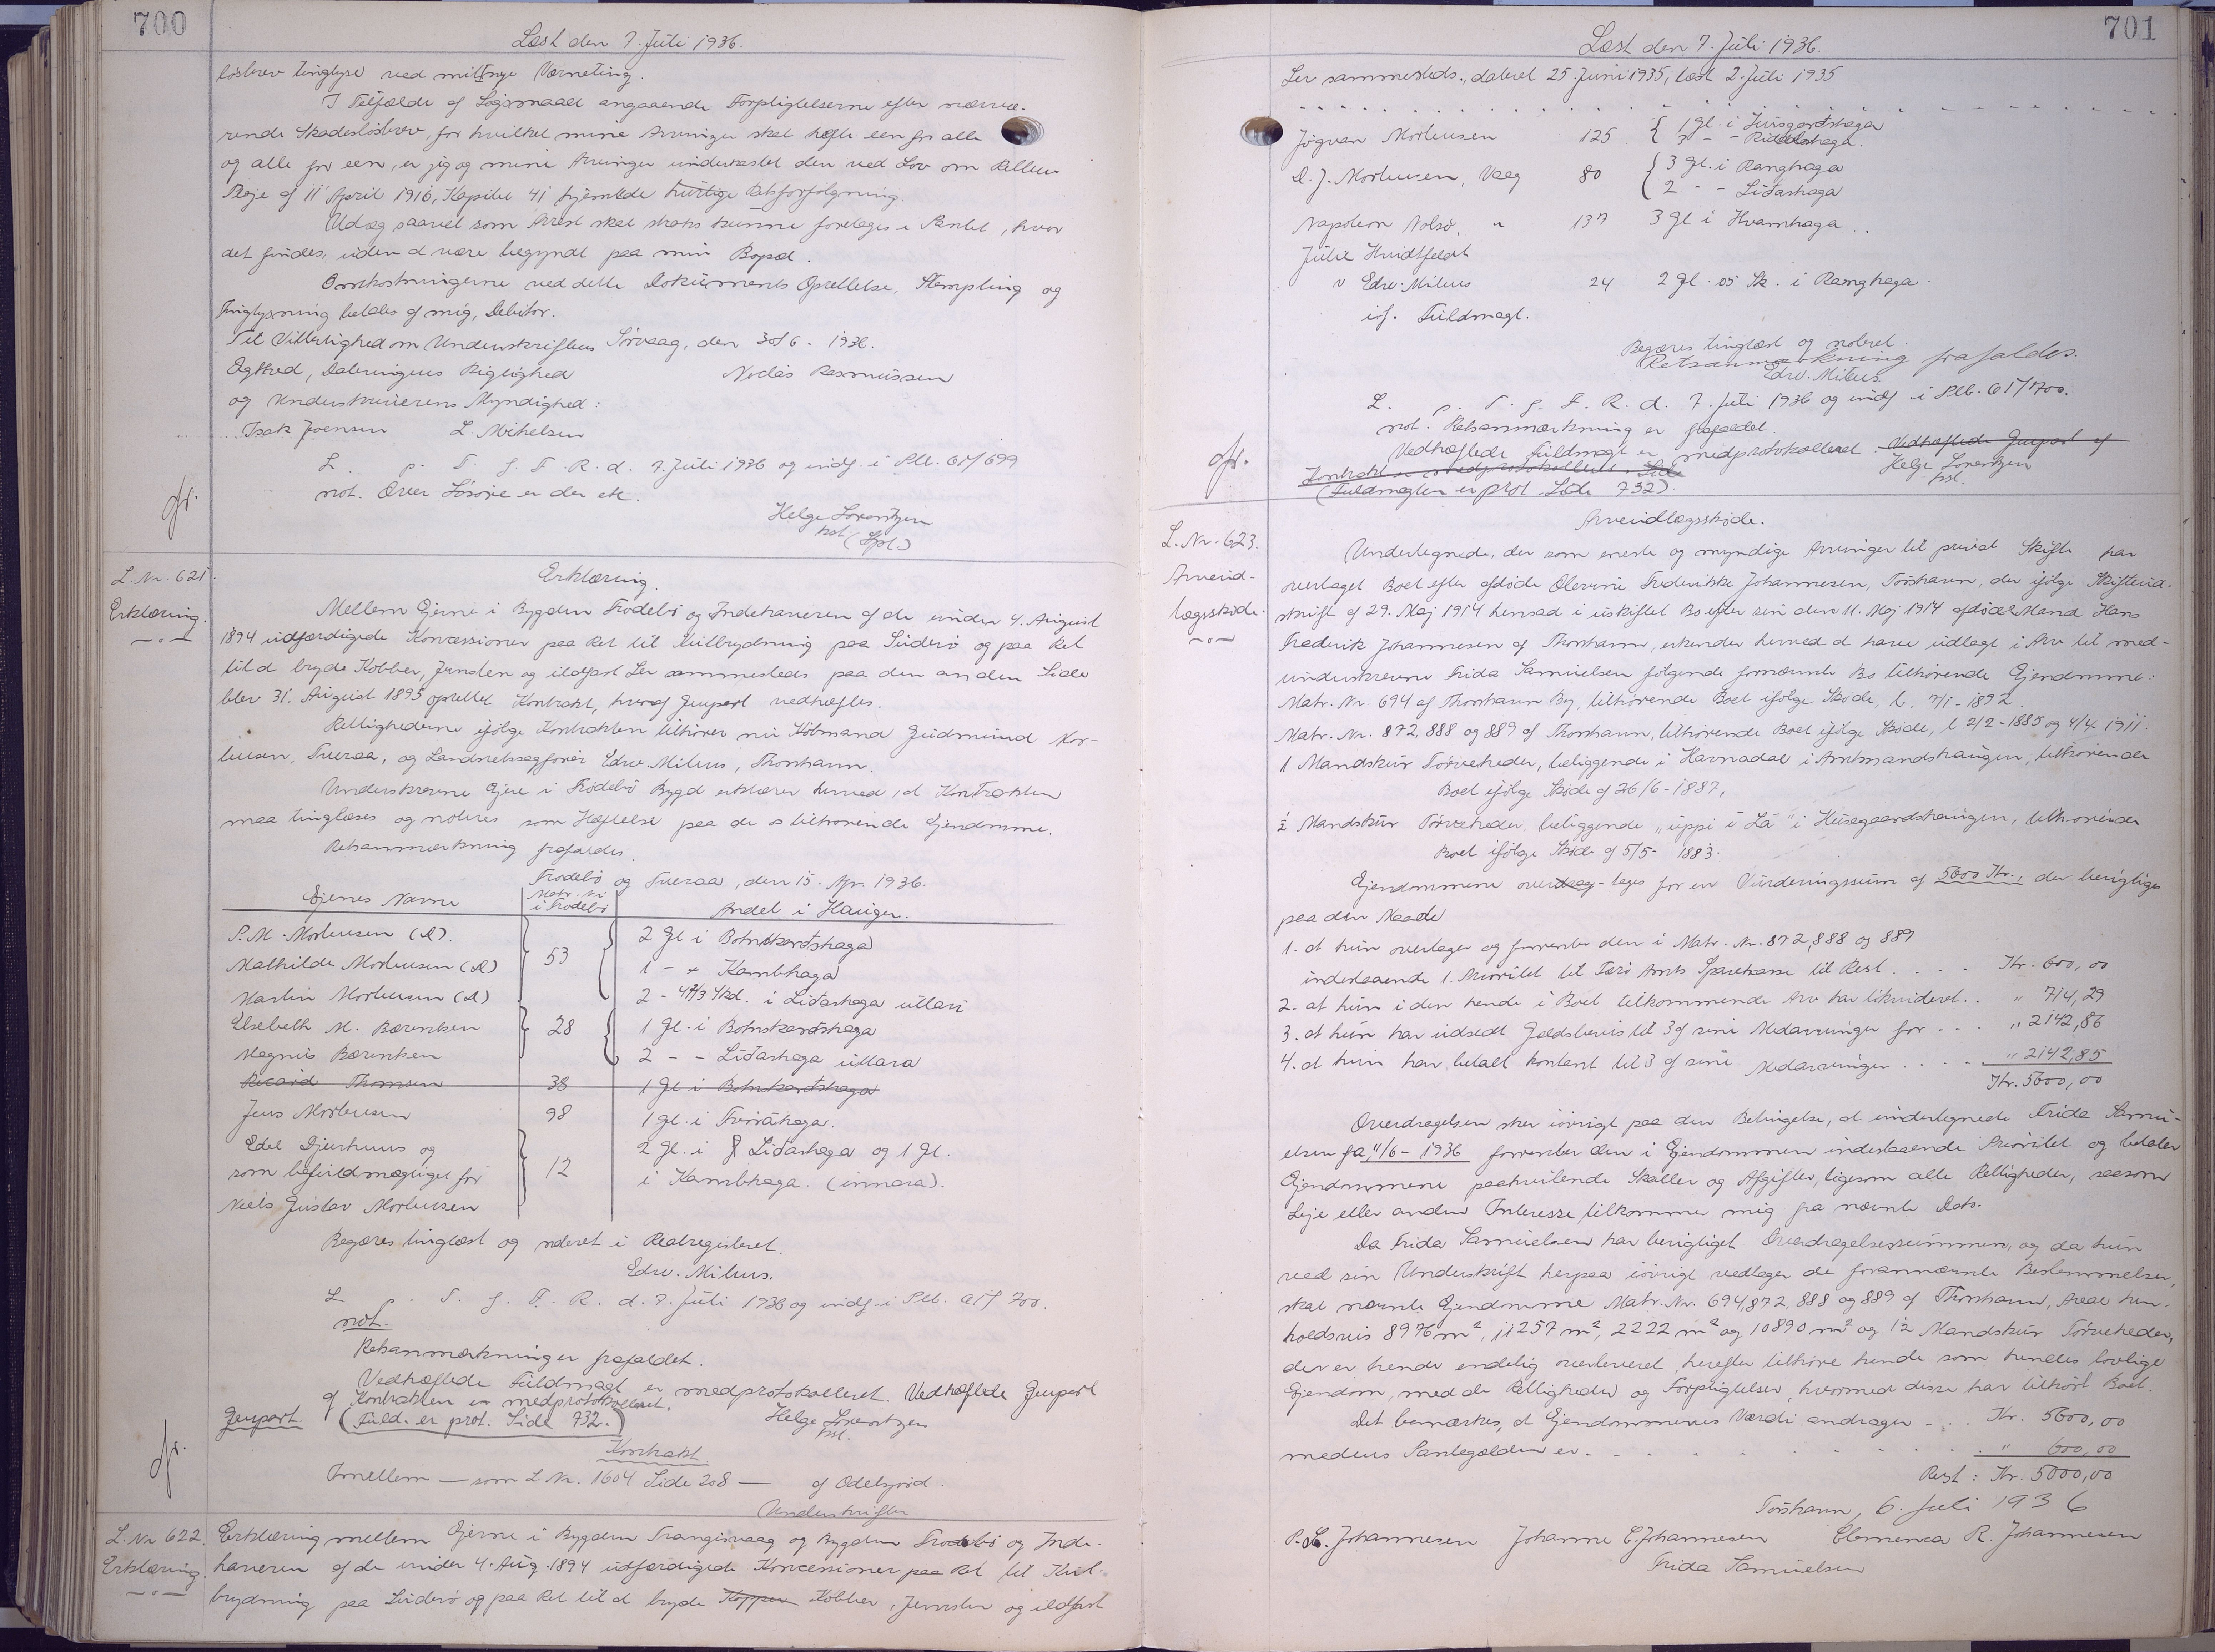 700
Læst den 7. Juli 1936.
løsbrev tinglyse ved mit nye Værneting.
I Tilfælde af Søgsmaal angaaende Forpligtelserne efter nærvæ-
rende Skadesløsbrev, for hvilket mine Arvinger skal hæfte een for alle
og alle for een, er jeg og mine Arvinger underkastet den ved Lov om Rettens
Pleje af 11' April 1916, Kapitel 41 hjemlede hurtige Retsforfølgning.
Udlæg saavel som Arrest skal straks kunne foretages i Pantet, hvor
det findes, uden at være begyndt paa min Bopæl.
Omkostningerne ved dette Dokuments Oprettelse, Stempling og
Tinglysning betales af mig, Debitor.
Til Vitterlighed om Underskriftens Sørvaag, den 30/6. 1936.
Ægthed, Dateringens Rigtighed Niclas Rasmussen
og Underskriverens Myndighed:
Isak Joensen L. Mikelsen
L. p. T. f. F. R. d. 7. Juli 1936 og indf. i Plb. 61/699
not. Over Løsøre er der ek.
fr.
Helge Lorentzen
kst. (Spl.)
L. Nr. 621.
Erklæring.
Erklæring.
Mellem Ejerne i Bygden Frodebø og Indehaveren af de under 4. August
1894 udfærdigede Koncessioner paa Ret til Kulbrydning paa Suderø og paa Ret
til at bryde Kobber, Jernsten og ildfast Ler sammesteds paa den anden Side
blev 31. August 1895 oprettet Kontrakt, hvoraf Genpart vedhæftes.
Rettighederne ifølge Kontrakten tilhører nu Købmand Gudmund Mor-
tensen, Tveraa, og Landsretssagfører Edw. Mitens, Thorshavn.
Underskrevne Ejere i Frodebø Bygd erklærer herved, at Kontrakten
maa tinglæses og noteres som Hæftelse paa de os tilhørende Ejendomme.
Retsanmærkning frafaldes.
Frodebø og Tveraa, den 15. Apr. 1936.
Ejernes Navne Matr. Nr. i Frodebø Andel i Haugen.
P. M. Mortensen (D). 2 Gl i Botnskarðshaga
Mathilde Mortensen (D) 53 1 - - Kambhaga
Martin Mortensen (D) 2 - 4 2/3 Skd. i Liðarhaga uttari
Elsebeth M. Bærentsen 28 1 Gl. i Botnskarðshaga
Magnus Bærentsen 2 - - Liðarhaga uttara
Ricard Thomsen 38 1 Gl i Botnskarðshaga
Jens Mortensen 98 1 gl. i Tvørahaga.
Edel Djurhuus og 2 Gl. i Liðarhaga og 1 Gl.
som befuldmægtiget for 12 i Kambhaga. (innara).
Niels Gustav Mortensen
Begæres tinglæst og noteret i Realregisteret.
Edw. Mitens.
L. p. T. f. F. R. d. 7. Juli 1936 og indf. i Plb. 61/700.
not.
Retsanmærkning er frafaldet.
Vedhæftede Fuldmagt er medprotokolleret. Vedhæftede Genpart
af Kontrakten er medprotokolleret.
(Fuld. er prot. Side 732.)
Helge Lorentzen
kst.
Genpart.
fr.
Kontrakt
Imellem — som L Nr. 1604 Side 208 — af Odelsjord.
Underskrifter
L. Nr 622.
Erklæring.
Erklæring mellem Ejerne i Bygden Trangisvaag og Bygden Frodebø og Inde-
haveren af de under 4. Aug. 1894 udfærdigede Koncessioner paa Ret til Kul-
brydning paa Suderø og paa Ret til at bryde Kopper Kobber, Jernsten og ildfast
701
Læst den 7. Juli 1936.
Ler sammesteds, dateret 25. Juni 1935, læst 2. Juli 1935
Jógvan Mortensen 125 { 1 gl. i Húsgarðshaga
D. J. Mortensen, Vaag 80 { 3 gl. i Ranghaga
2 - - Liðarhaga
Napoleon Nolsø, " 137 3 gl i Hvamhaga ..
Julie Hvidtfeldt
v Edw. Mitens 24 2 gl. 05 Sk. i Ranghaga.
if. Fuldmagt.
Begæres tinglæst og noteret.
Retsanmærkning frafaldes.
Edw. Mitens
L. p. T. f. F. R. d. 7. Juli 1936 og indf. i Plb. 61/700.
not. Retsanmærkning er frafaldet.
Vedhæftede Fuldmagt er medprotokolleret. Vedhæftede Genpart af
Kontrakt er medprotokolleret.
(Fuldmagten er prot. Side 732).
Helge Lorentzen
kst.
fr.
L. Nr. 623.
Arveud-
lægsskøde.
Arveudlægsskøde.
Undertegnede, der som eneste og myndige Arvinger til privat Skifte har
overtaget Boet efter afdøde Olevine Frederikke Johannesen, Tórshavn, der ifølge Skifteud-
skrift af 29. Maj 1914 hensad i uskiftet Bo efter sin den 11. Maj 1914 afdøde Mand Hans
Frederik Johannesen af Thorshavn, erkender herved at have udlagt i Arv til med-
underskrevne Frida Samuelsen følgende fornævnte Bo tilhørende Ejendomme:
Matr. Nr. 694 af Thorshavn By, tilhørende Boet ifølge Skøde, l. 7/1 - 1892.
Matr. Nr. 872, 888 og 889 af Thorshavn, tilhørende Boet ifølge Skøde, l. 2/2 - 1885 og 4/4. 1911.
1 Mandskur Tørveheder, beliggende i Havnadal i Amtmandshaugen, tilhørende
Boet ifølge Skøde af 26/6 - 1887,
½ Mandskur Tørveheder, beliggende „uppi í Lá" i Husagaardshaugen, tilhørende
Boet ifølge Skøde af 5/5 - 1883.
Ejendommene overdrag-tages for en Vurderingssum af 5600 Kr., der berigtiges
paa den Maade
1. at hun overtager og forrenter den i Matr. Nr. 872, 888 og 889
indestaaende 1. Prioritet til Færø Amts Sparekasse til Rest .... Kr. 600,00
2. at hun i den hende i Boet tilkommende Arv har likvideret .. " 714,29
3. at hun har udstedt Gældsbevis til 3 af sine Medarvinger for ... " 2142,86
4. at hun har betalt kontant til 3 af sine Medarvinger .... " 2142,85
Kr. 5600,00
Overdragelsen sker iøvrigt paa den Betingelse, at undertegnede Frida Samu-
elsen fra 11/6 - 1936 forrenter den i Ejendommen indestaaende Prioritet og betaler
Ejendommene paahvilende Skatter og Afgifter, ligesom alle Rettigheder, saasom
Leje eller anden Interesse tilkommer mig fra nævnte Dato.
Da Frida Samuelsen har berigtiget Overdragelsessummen, og da hun
ved sin Underskrift herpaa iøvrigt vedtager de foranævnte Bestemmelser,
skal nævnte Ejendomme Matr. Nr. 694, 872, 888 og 889 af Thorshavn, Areal hen-
holdsvis 8976 m², 11257 m², 2222 m² og 10890 m² og 1½ Mandskur Tørveheder,
der er hende endelig overleveret, herefter tilhøre hende som hendes lovlige
Ejendom, med de Rettigheder og Forpligtelser, hvormed disse har tilhørt Boet.
Det bemærkes, at Ejendommenes Værdi andrager - .. Kr. 5600,00
medens Pantegælden er . . . " 600,00
Rest: Kr. 5000,00
Tórshavn, 6. Juli 1936
P. L. Johannesen Johanne C. Johannesen Clemenca R. Johannesen
Frida Samuelsen